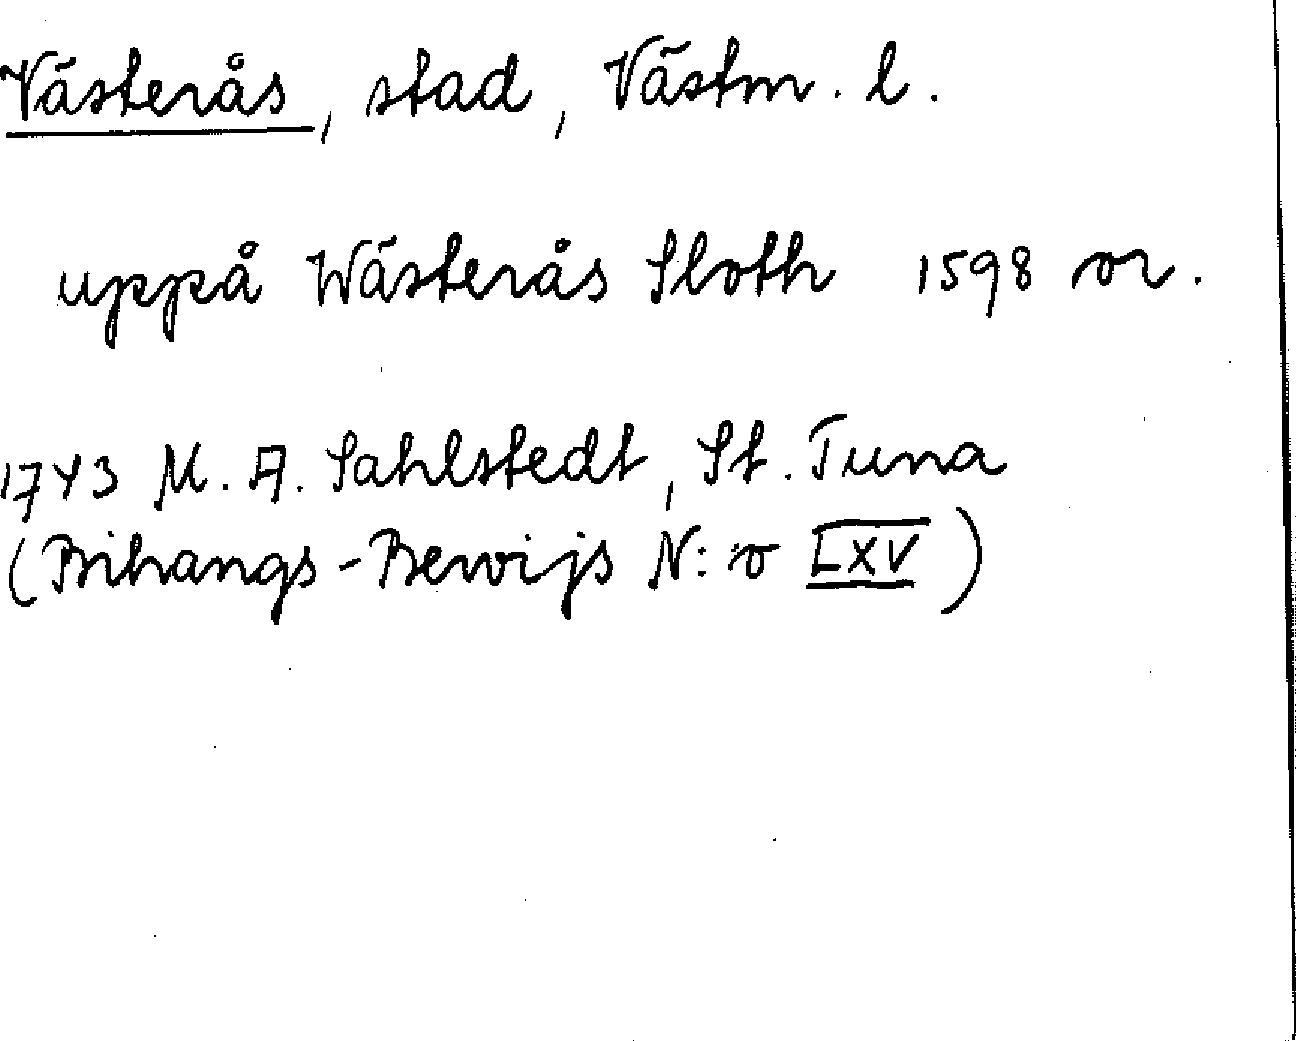 Västerås, stad, Västm. l.
uppå Wästerås Sloth 1598 or.
1743 M. A. Sahlstedt, St. Tuna
(Bihangs-Bewijs N:o LXV)